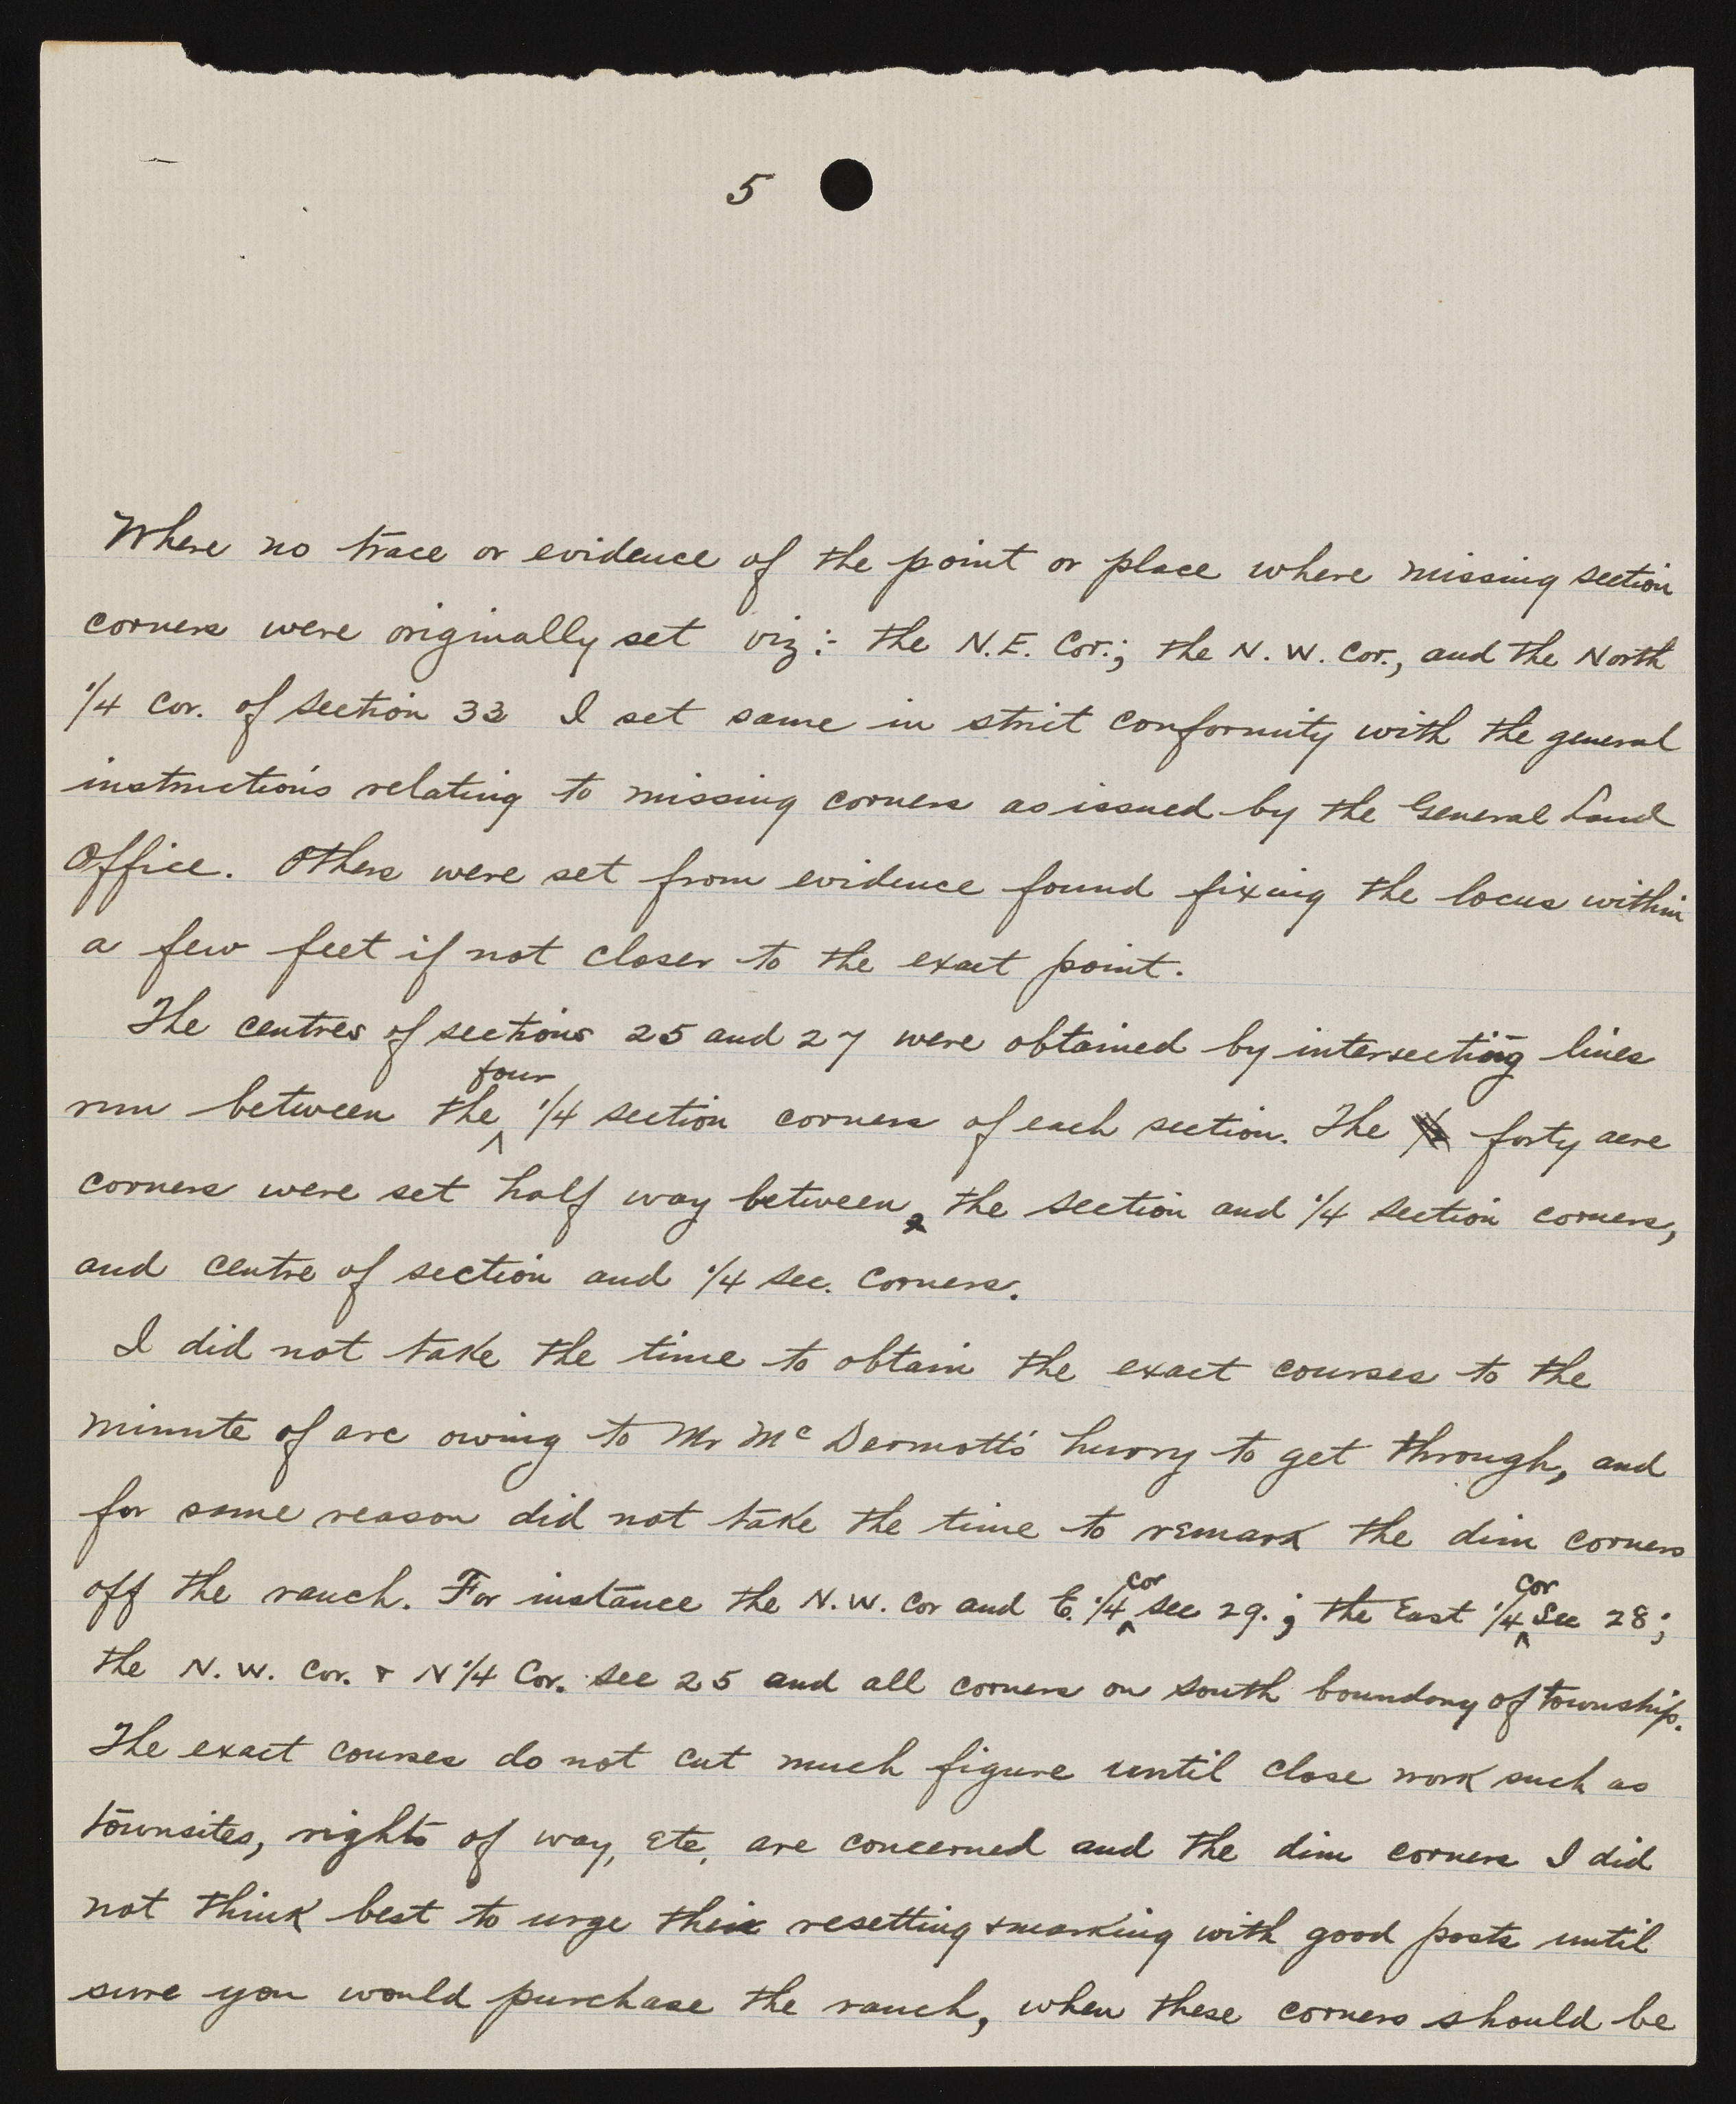 5
Where no trace or evidence of the point or place where missing section
corners were originally set viz:- the N.E. Cor.; the N.W. Cor., and the North
1/4 Cor. of section 33 I set same in strict conformity with the general
instructions relating to missing corners as issued by the General Land
Office. Others were set from evidence found fixing the locus within
a few feet if not closer to the exact point.
The centres of sections 25 and 27 were obtained by intersecting lines
run between the four 1/4 section corners of each section. The forty acre
corners were set half way between the section and 1/4 section corners,
and centre of section and 1/4 sec. Corners.
I did not take the time to obtain the exact courses to the
minute of arc owing to Mr McDermott's hurry to get through, and
for same reason did not take the time to remark the dim corners
off the ranch. For instance the N.W. Cor and E. 1/4 cor sec 29.; the East 1/4 cor Sec 28;
the N.W. Cor. & N 1/4 Cor. sec 25 and all corners on south boundary of township.
The exact courses do not cut much figure until close work such as
townsites, rights of way, etc, are concerned and the dim corners I did
not think best to urge their resetting & marking with good posts until
sure you would purchase the ranch, when these corners should be